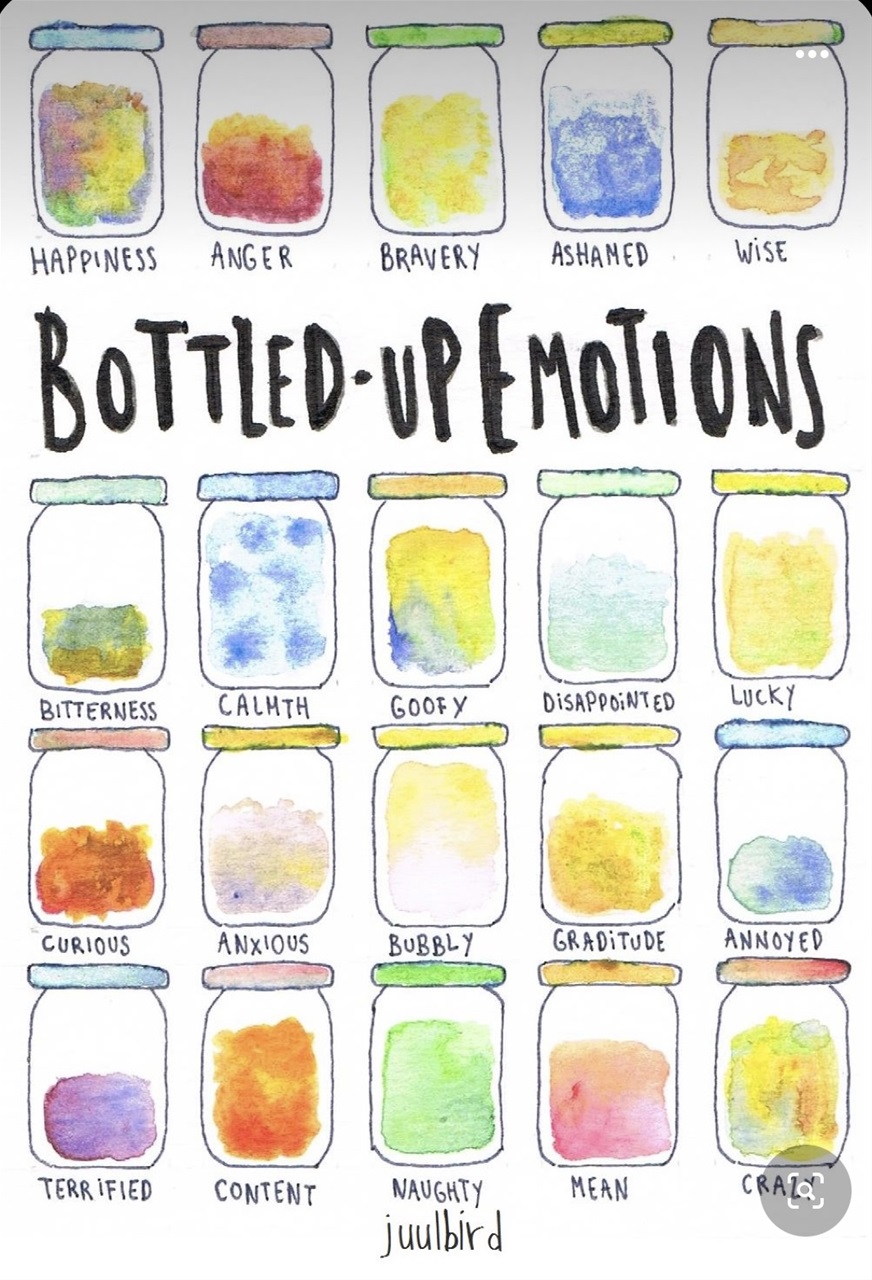 HAPPINESS ANGER BRAVERY ASHAMED WiSE
BOTTLED-UP EMOTIONS
BITTERNESS CALMTH GOOFY DiSAPPOiNTED LUCKY
CURIOUS ANXIOUS BUBBLY GRADiTUDE ANNOYED
TERRiFIED CONTENT NAUGHTY MEAN CRAZY
juulbird